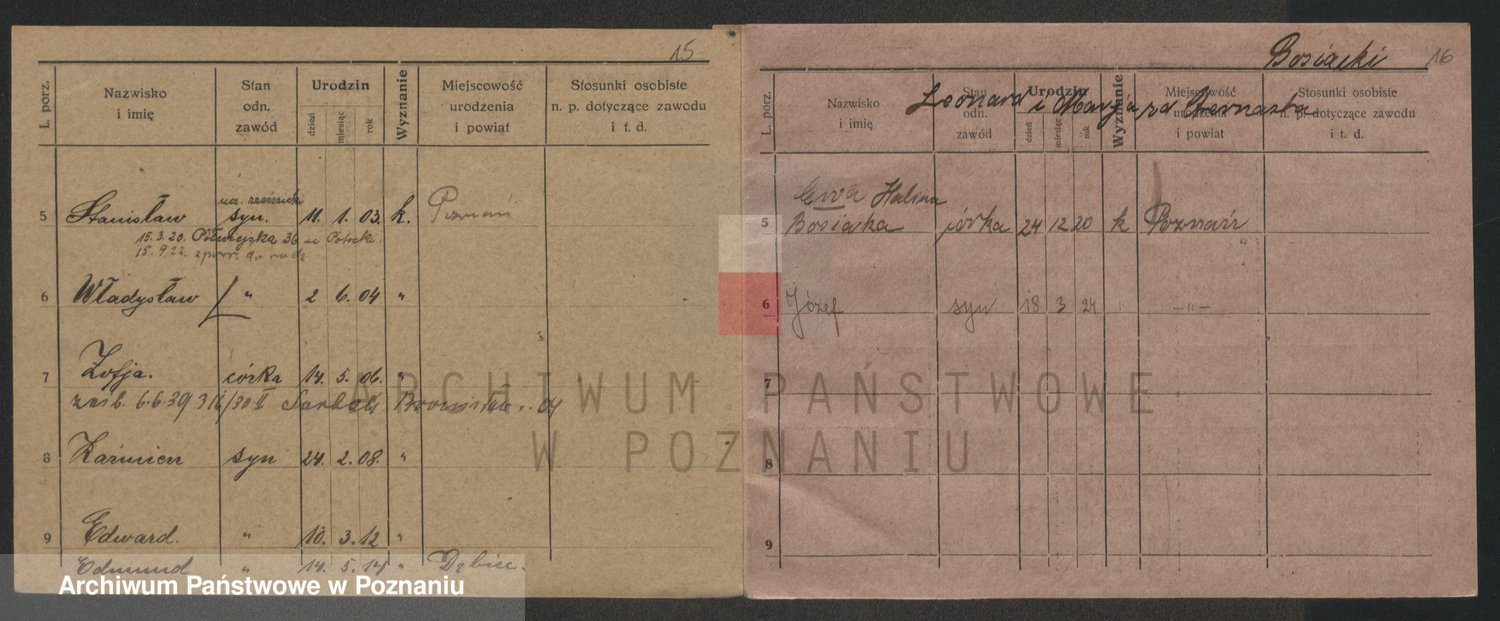 15
L. porz.
Nazwisko i imię
Stan odn. zawód
Urodzin
dzień miesiąc rok
Wyznanie
Miejscowość urodzenia i powiat
Stosunki osobiste n. p. dotyczące zawodu i t. d.
5 Stanisław syn. 11. 1. 03. k. Poznań
15.3.20. Półwiejska 36 u
15.9.22. do rodz.
6 Władysław " 2 6. 04 "
7 Zofja. córka 14. 5. 06. "
6.6.30
8 Kaźmierz syn 24. 2. 08. "
9 Edward. " 10. 3. 12 "
Edmund " 14. 5. 14 " Dębiec.
Bosiacki 16
Leonard i Maryja
L. porz.
Nazwisko i imię
Stan odn. zawód
Urodzin
dzień miesiąc rok
Wyznanie
Miejscowość urodzenia i powiat
Stosunki osobiste n. p. dotyczące zawodu i t. d.
Ewa Halina
5 Bosiacka córka 24 12 20 k Poznań
6 Józef syn 18 3 24 " -"-
7
8
9
ARCHIWUM PAŃSTWOWE
W POZNANIU
Archiwum Państwowe w Poznaniu